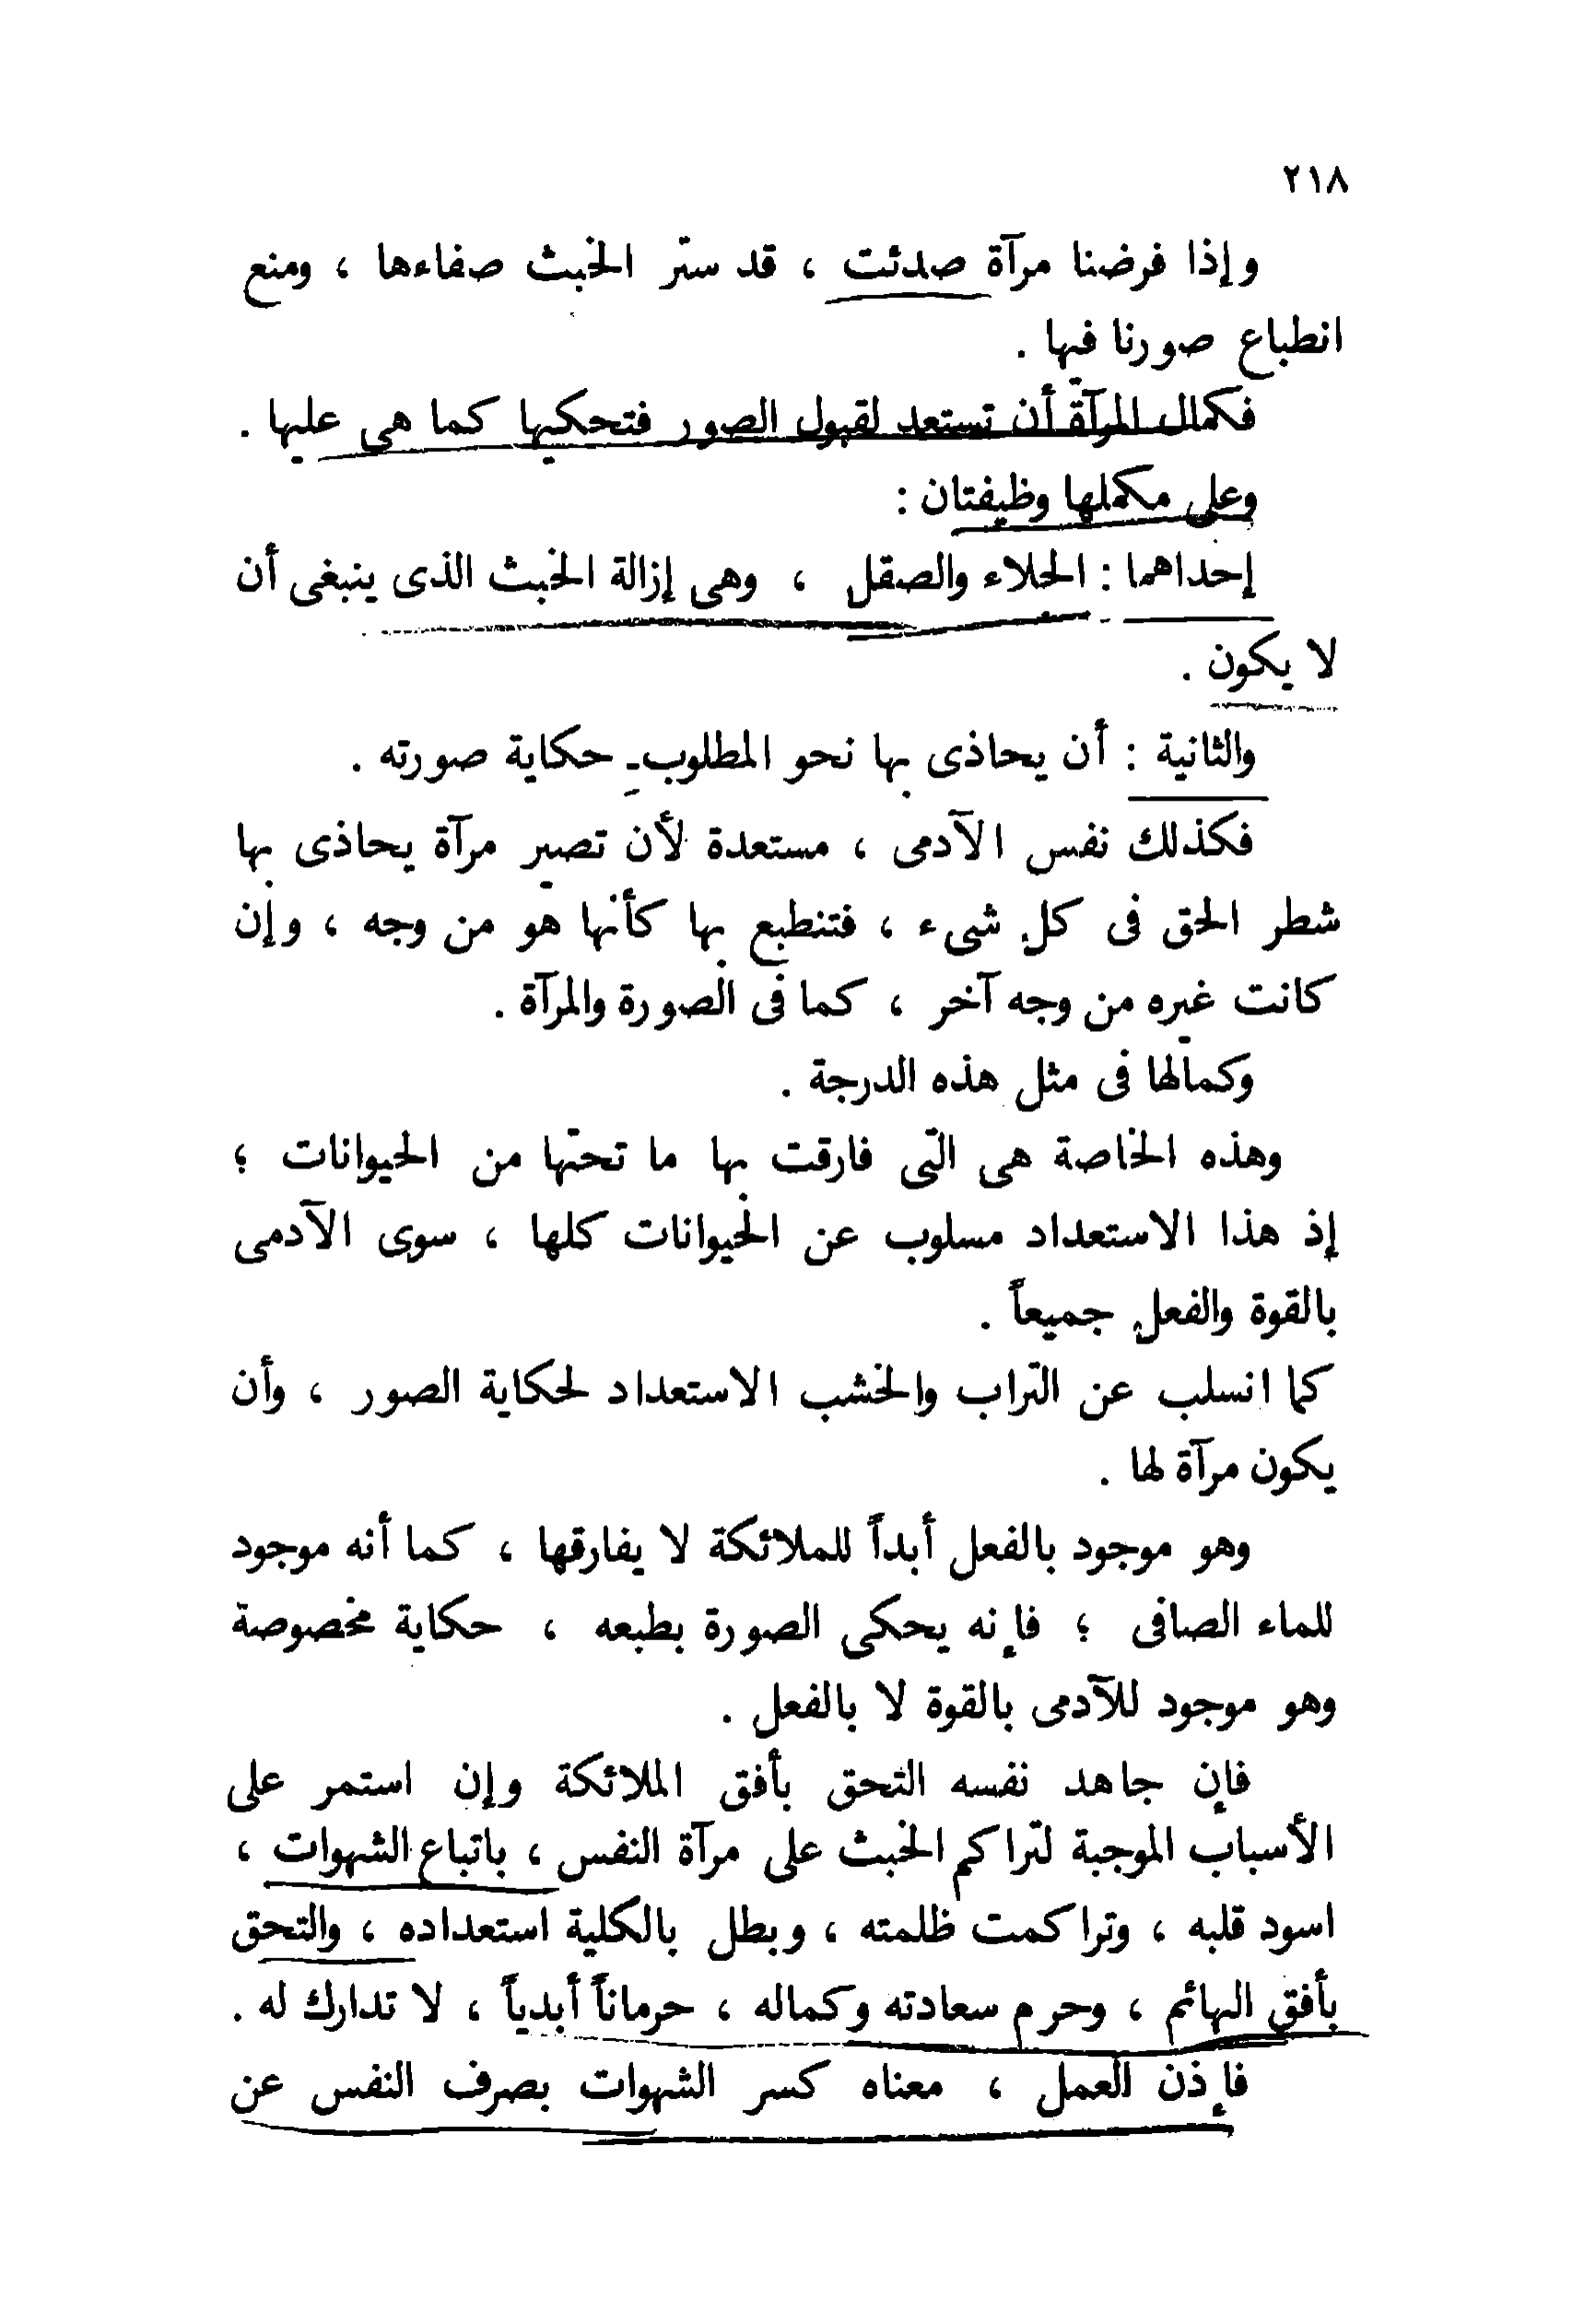 ٢١٨
وإذا فرضنا مرآة صدئت ، قد ستر الخبث صفاءها ، ومنع
انطباع صورنا فيها .
فكمال المرآة أن تستعد لقبول الصور فتحكيها كما هى عليها .
وعلى مكملها وظيفتان :
إحداهما : الجلاء والصقل ، وهى إزالة الخبث الذى ينبغى أن
لا يكون .
والثانية : أن يحاذى بها نحو المطلوب حكاية صورته .
فكذلك نفس الآدمى ، مستعدة لأن تصير مرآة يحاذى بها
شطر الحق فى كل شىء ، فتنطبع بها كأنها هو من وجه ، وإن
كانت غيره من وجه آخر ، كما فى الصورة والمرآة .
وكمالها فى مثل هذه الدرجة .
وهذه الخاصة هى التى فارقت بها ما تحتها من الحيوانات ؛
إذ هذا الاستعداد مسلوب عن الحيوانات كلها ، سوى الآدمى
بالقوة والفعل جميعاً .
كما انسلب عن التراب والخشب الاستعداد لحكاية الصور ، وأن
يكون مرآة لها .
وهو موجود بالفعل أبداً للملائكة لا يفارقها ، كما أنه موجود
للماء الصافى ؛ فإنه يحكى الصورة بطبعه ، حكاية مخصوصة
وهو موجود للآدمى بالقوة لا بالفعل .
فإن جاهد نفسه التحق بأفق الملائكة وإن استمر على
الأسباب الموجبة لتراكم الخبث على مرآة النفس ، باتباع الشهوات ،
اسود قلبه ، وتراكمت ظلمته ، وبطل بالكلية استعداده ، والتحق
بأفق البهائم ، وحرم سعادته وكماله ، حرماناً أبدياً ، لا تدارك له .
فإذن العمل ، معناه كسر الشهوات بصرف النفس عن